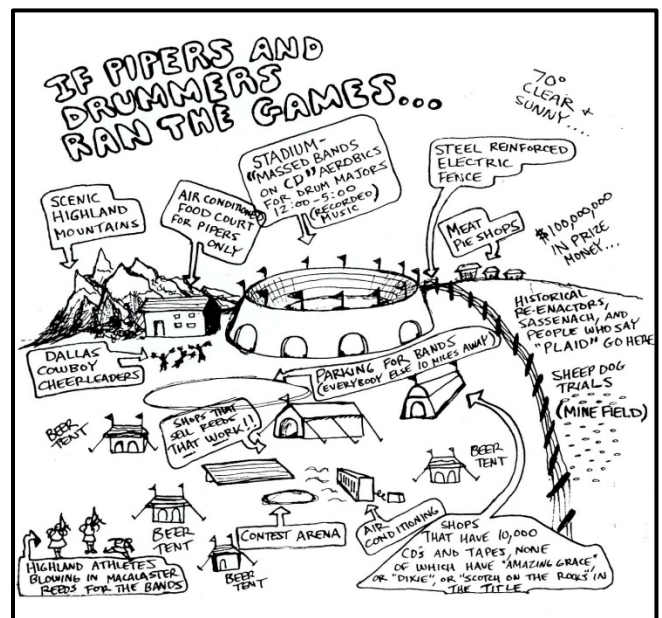 IF PIPERS AND
DRUMMERS
RAN THE GAMES...
70°
CLEAR +
SUNNY....
SCENIC
HIGHLAND
MOUNTAINS
AIR CONDITIONED
FOOD COURT
FOR PIPERS
ONLY
STADIUM-
"MASSED BANDS
ON CD" AEROBICS
FOR DRUM MAJORS
12:00-5:00
(RECORDED
MUSIC)
STEEL REINFORCED
ELECTRIC
FENCE
MEAT
PIE SHOPS
$100,000,000
IN PRIZE
MONEY...
HISTORICAL
RE-ENACTORS,
SASSENACH, AND
PEOPLE WHO SAY
"PLAID" GO HERE
DALLAS
COWBOY
CHEERLEADERS
PARKING FOR BANDS
(EVERYBODY ELSE 10 MILES AWAY)
SHEEP DOG
TRIALS
(MINE FIELD)
BEER
TENT
SHOPS THAT
SELL REEDS
THAT WORK!!
BEER
TENT
BEER
TENT
CONTEST ARENA
AIR
CONDITIONING
BEER
TENT
HIGHLAND ATHLETES
BLOWING IN MACALASTER
REEDS FOR THE BANDS
SHOPS
THAT HAVE 10,000
CD'S AND TAPES, NONE
OF WHICH HAVE "AMAZING GRACE",
OR "DIXIE", OR "SCOTCH ON THE ROCKS" IN
THE TITLE